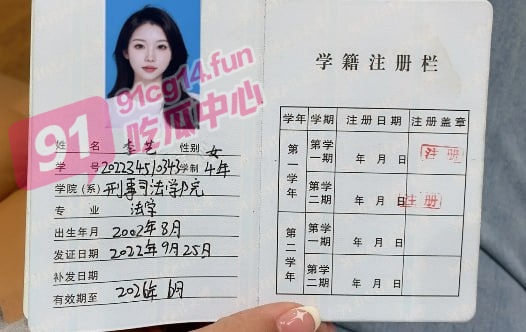 91
91cg14.fun
吃瓜中心
姓 名 性别 女
学 号 202234510343 学制 4年
学院(系) 刑事司法学院
专 业 法学
出生年月 2002年8月
发证日期 2022年9月25日
补发日期
有效期至 2026年6月
学籍注册栏
学年 学期 注册日期 注册盖章
第一学年 第学一期 年 月 日 注册
第学二期 年 月 日 注册
第二学年 第学一期 年 月 日
第学二期 年 月 日